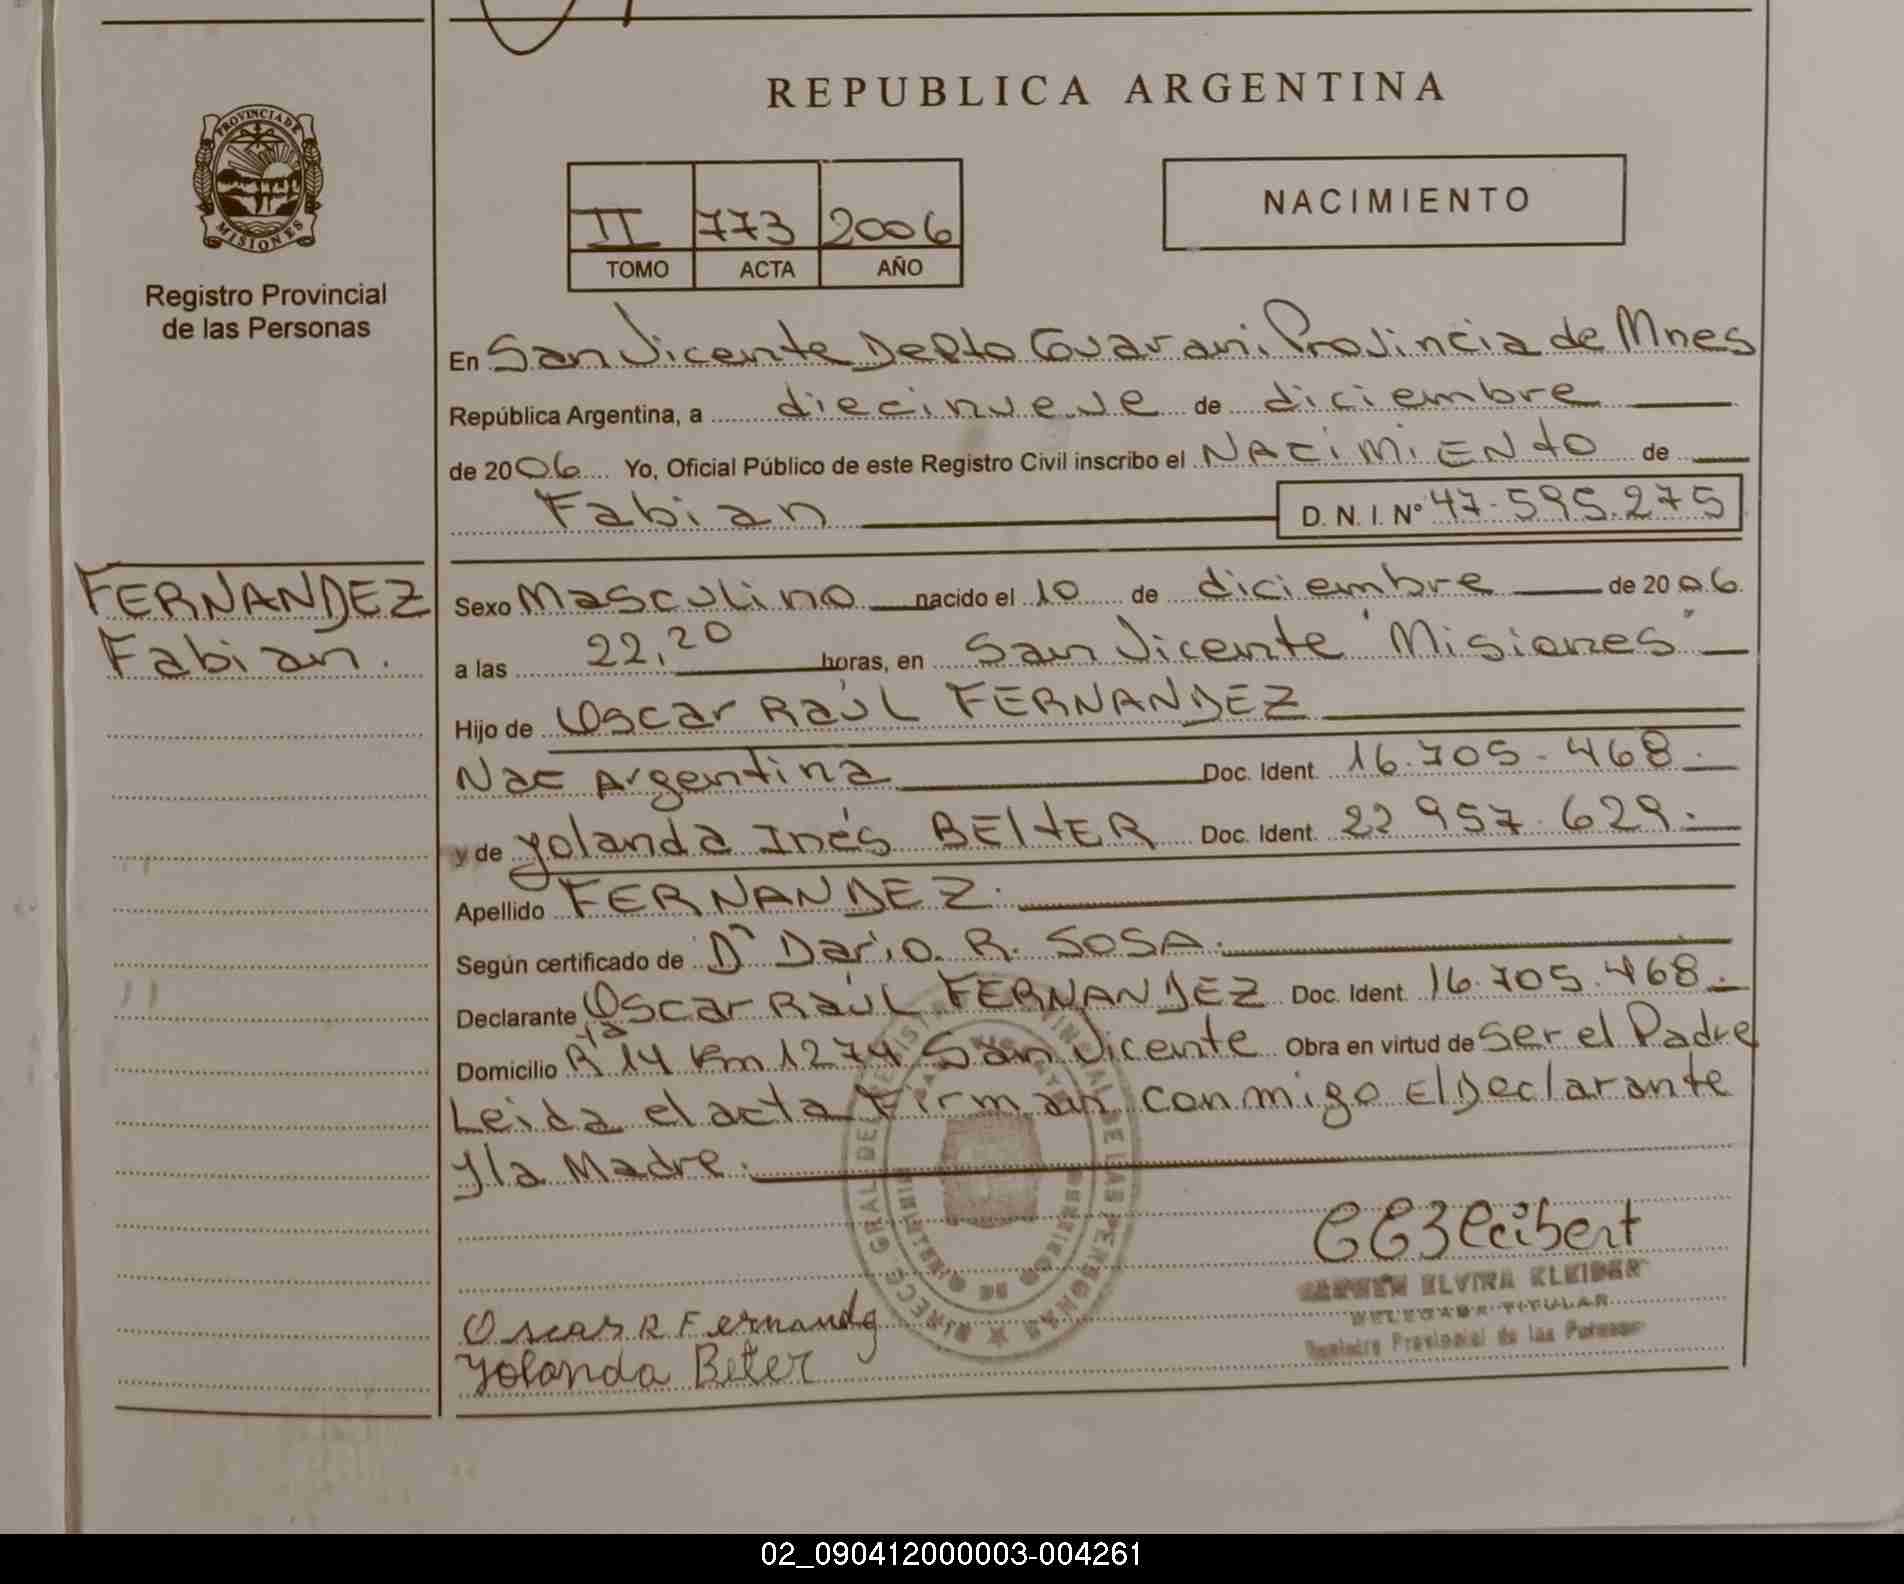 REPUBLICA ARGENTINA
PROVINCIA DE MISIONES
Registro Provincial
de las Personas
II 773 2006
TOMO ACTA AÑO
NACIMIENTO
En San Vicente Depto Guarani. Provincia de Mnes
República Argentina, a diecinueve de diciembre
de 2006 Yo, Oficial Público de este Registro Civil inscribo el NACIMIENTO de
Fabian D. N. I. Nº 47.595.275
FERNANDEZ
Fabian.
Sexo Masculino nacido el 10 de diciembre de 2006.
a las 22,20 horas, en San Vicente "Misiones"
Hijo de Oscar Raúl FERNANDEZ
Nac Argentina Doc. Ident. 16.705.468.
y de Yolanda Inés BEltER Doc. Ident. 22 957.629.
Apellido FERNANDEZ.
Según certificado de Dr Dario. R. SOSA.
Declarante Oscar Raúl FERNANDEZ Doc. Ident. 16.705.468.
Domicilio Rta 14 Km 1274 San Vicente Obra en virtud de Ser el Padre
Leida el acta Firman conmigo El Declarante
y la Madre.
Oscar R Fernandez
Yolanda Belter
ELVIRA
DELEGADA TITULAR
Registro Provincial de las Personas
02_090412000003-004261